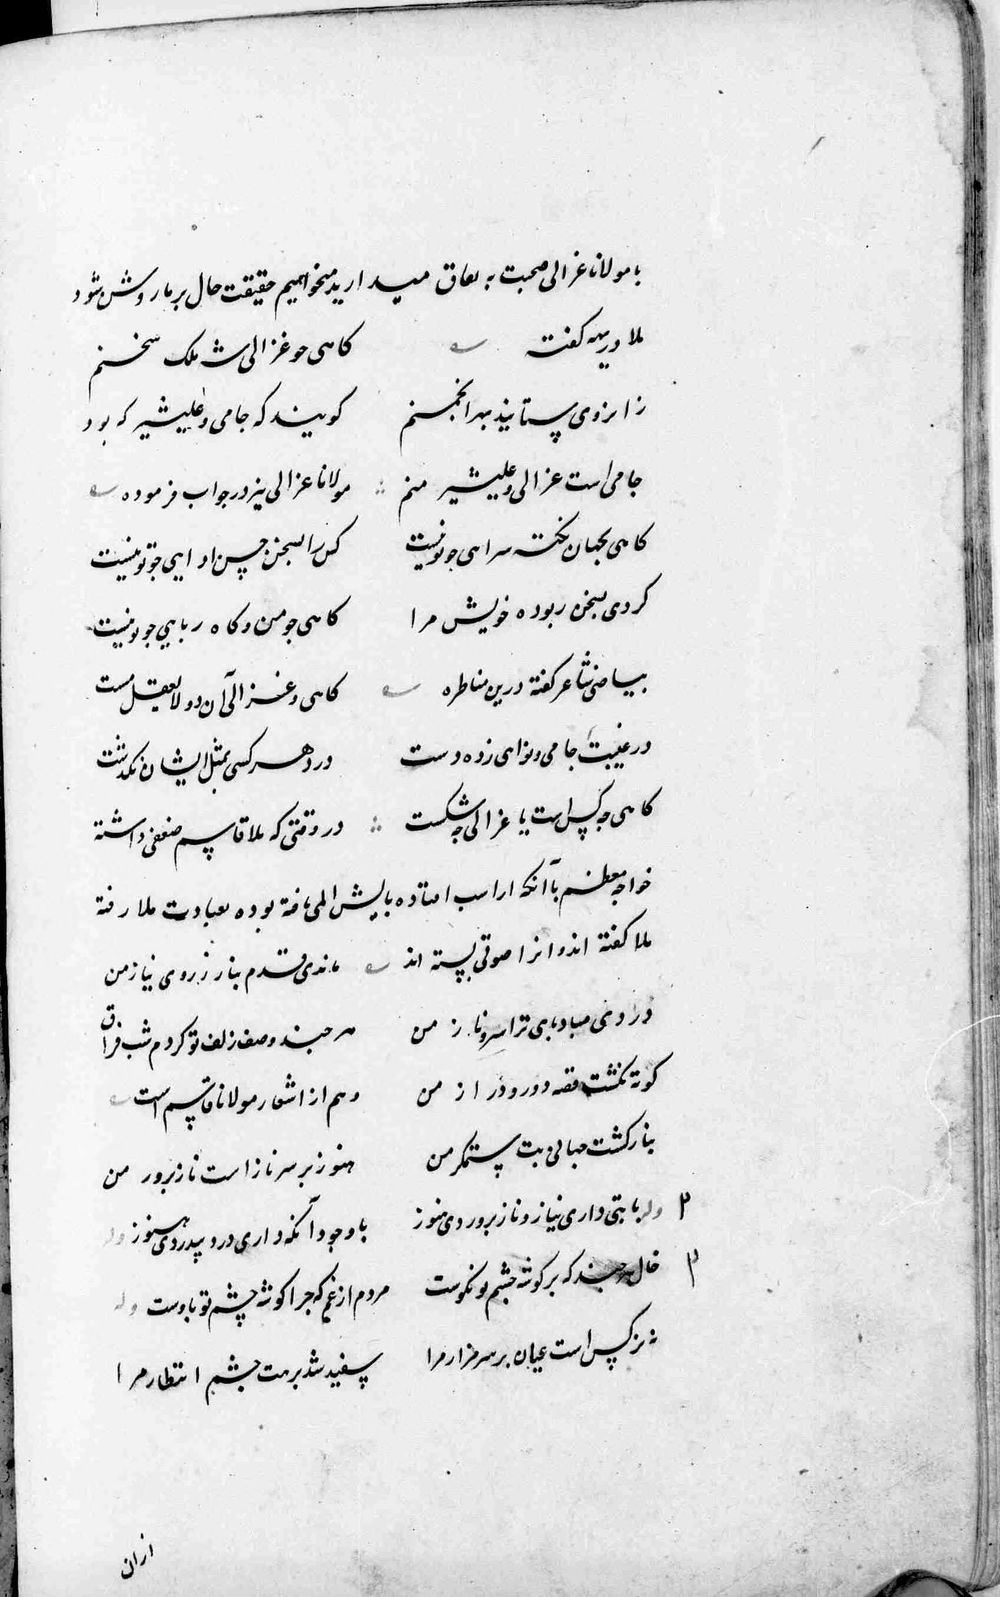 با مولانا غزالی صحبت به نفاق میدارید میخواهیم حقیقت حال بر ما روشن شود
ملا در بدیهه گفت کاهی چو غزالی شه ملک سخنم
زانروی ستایند بهر انجمنم گویند که جامی و علیشیر که بود
جامی است غزالی و علیشیر منم مولانا غزالی نیز در جواب فرموده
کاهی بجهان نکته سرائی چو تو نیست کس را بسخن حسن ادایی چو تو نیست
کردی بسخن ربوده خویش مرا کاهی چو من و کاه ربایی چو تو نیست
بیاضی شاعر گفته درین مناظره کاهی و غزالی آن دو لایعقل مست
در غیبت جامی و نوائی زده دست در دهر کسی بمثل ایشان نگذشت
کاهی چه کس است یا غزالی چه سگست در وقتی که ملا قاسم ضعفی داشته
خواجه معظم با آنکه از اسب افتاده پایش المی یافته بوده بعیادت ملا رفته
ملا گفته اند و انرا صوتی بسته اند ماندی قدم بناز ز روی نیاز من
دردی مبادا پای ترا سرو ناز من هر چند وصف زلف تو کردم شب فراق
کوته نگشت قصه دور و دراز من و هم از اشعار مولانا قاسم است
بناز کشت جهانی بت ستمگر من هنوز بر سر نازاست نازپرور من
وله با بتی داری نیاز و نازپروردی هنوز با وجود آنکه داری درد بیدردی هنوز وله
خال هر چند که بر گوشه چشم تو نکوست مردم از غم که چرا گوشه چشم تو باوست وله
نه نرگس است عیان بر سر مزار مرا سفید شد برهت چشم انتظار مرا
ازان